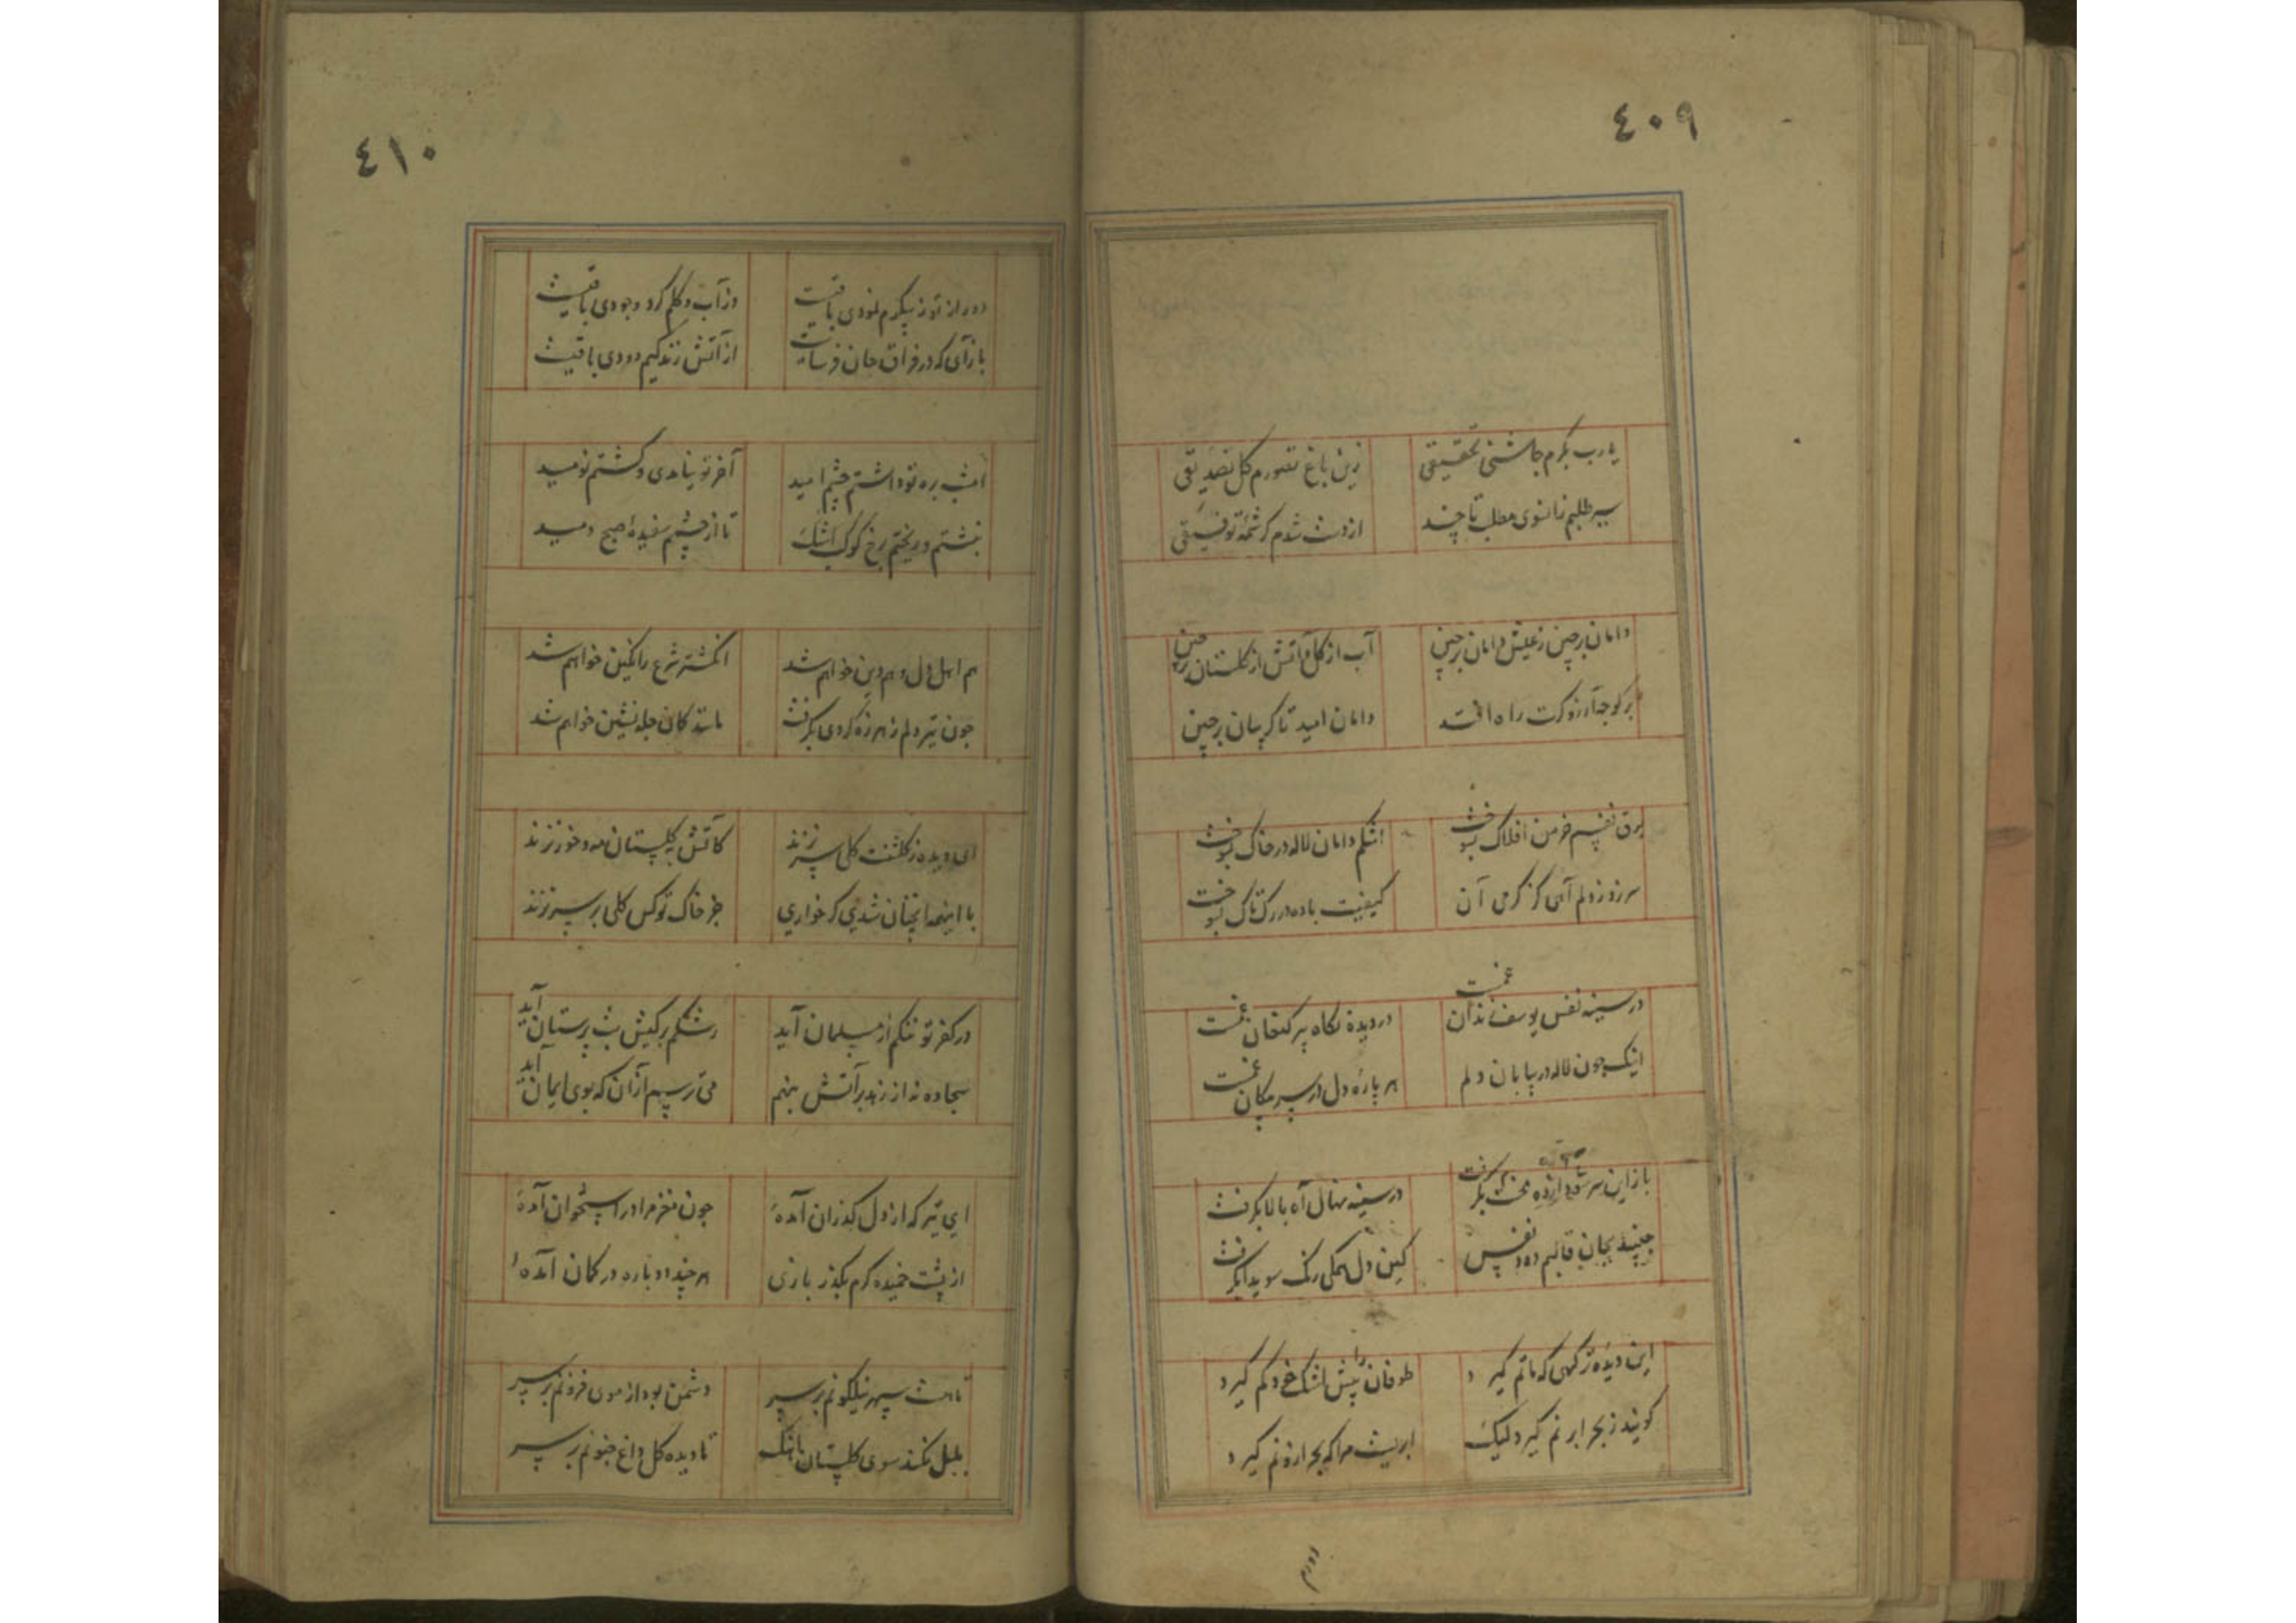 ٤٠٩
یا رب بکرم چاشنی تحقیقی
زین باغ تصورم گل تصدیقی
بی طلبم زانوی مطلب تا چند
از دست شدم کرشمهٔ توفیقی
دامان برچین ز عیش دامان برچین
آب از گل و آتش از گلستان برچین
بر کوچهٔ آرزو کرت راه افتد
دامان امید تا کریبان برچین
برق نفسم خرمن افلاک بسوخت
اشکم دامان لاله در خاک بسوخت
سر زد ز دلم آهی کز کرمی آن
کیفیت باده در رک تاک بسوخت
در سینه نفس یوسف زندان غمست
در دیده نکاه پیر کنعان غمست
اینک چون لاله در بیابان دلم
هر پارهٔ دل در سر مکان غمست
باز این سر بکرفت
در سینه نهال آه بالا بکرفت
بجان قالبم دود نفس
کین دل همکی رنک سویدا بکرفت
این دیده ز کهی که ماتم کیرد
طوفان را پیش اشک خود کم کیرد
کویند ز بحر ابر نم کیرد لیک
ابریست مرا که بحر ازو نم کیرد
دورم
٤١٠
دور از تو ز پیکرم نمودی باقیست
وز آب و کلم کرد وجودی باقیست
باز آی که در فراق جان فرسایت
از آتش زندکیم دودی باقیست
امشب بره تو داشتم چشم امید
آخر تو نیامدی و کشتم نومید
بنشستم و ریختم برخ کوکب اشک
تا از چشمم سفیدهٔ صبح دمید
هم اهل دل و هم دین خواهم شد
انکشتر شرع را نکین خواهم شد
چون تیر دلم ز هرزه کردی بکرفت
مانند کمان چله نشین خواهم شد
ای دیده ز کلشنت کلی سر نزند
کاتش به کلستان مه و خور نزند
با اینهمه آنچنان شدی که خواری
جز خاک تو کس کلی بر سر نزند
در کفر تو ننکم از مسلمان آید
رشکم بر کیش بت پرستان آید
سجاده نه از زهد بر آتش بنهم
می ترسم از آن که بوی ایمان آید
ای تیر که از دل کذران آمدهٔ
چون مغز مرا در استخوان آمدهٔ
از پشت خمیده کرم بکذر بازی
هر چند دوباره در کمان آمدهٔ
تا هست سپهر نیلکونم بر سر
دشمن بود از موی فزونم بر سر
بلبل نکند سوی کلستان بانک
تا دیده کل داغ جنونم بر سر